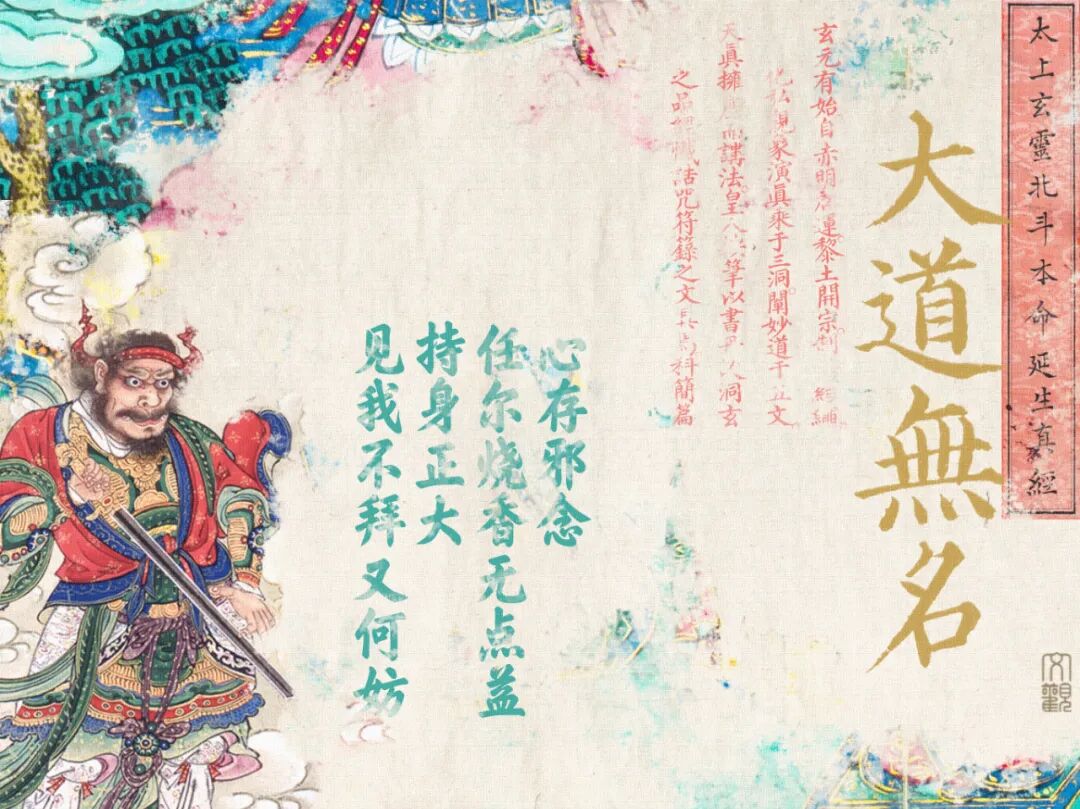 太上玄靈北斗本命延生真經
大道無名
玄元有始自赤明 運黎土開宗制
演真乘于三洞闡妙道于 文
天真擁 講法皇 筆以書 八洞玄
之品 咒符籙之文 科簡篇
心存邪念
任尔烧香无点益
持身正大
见我不拜又何妨
文觀